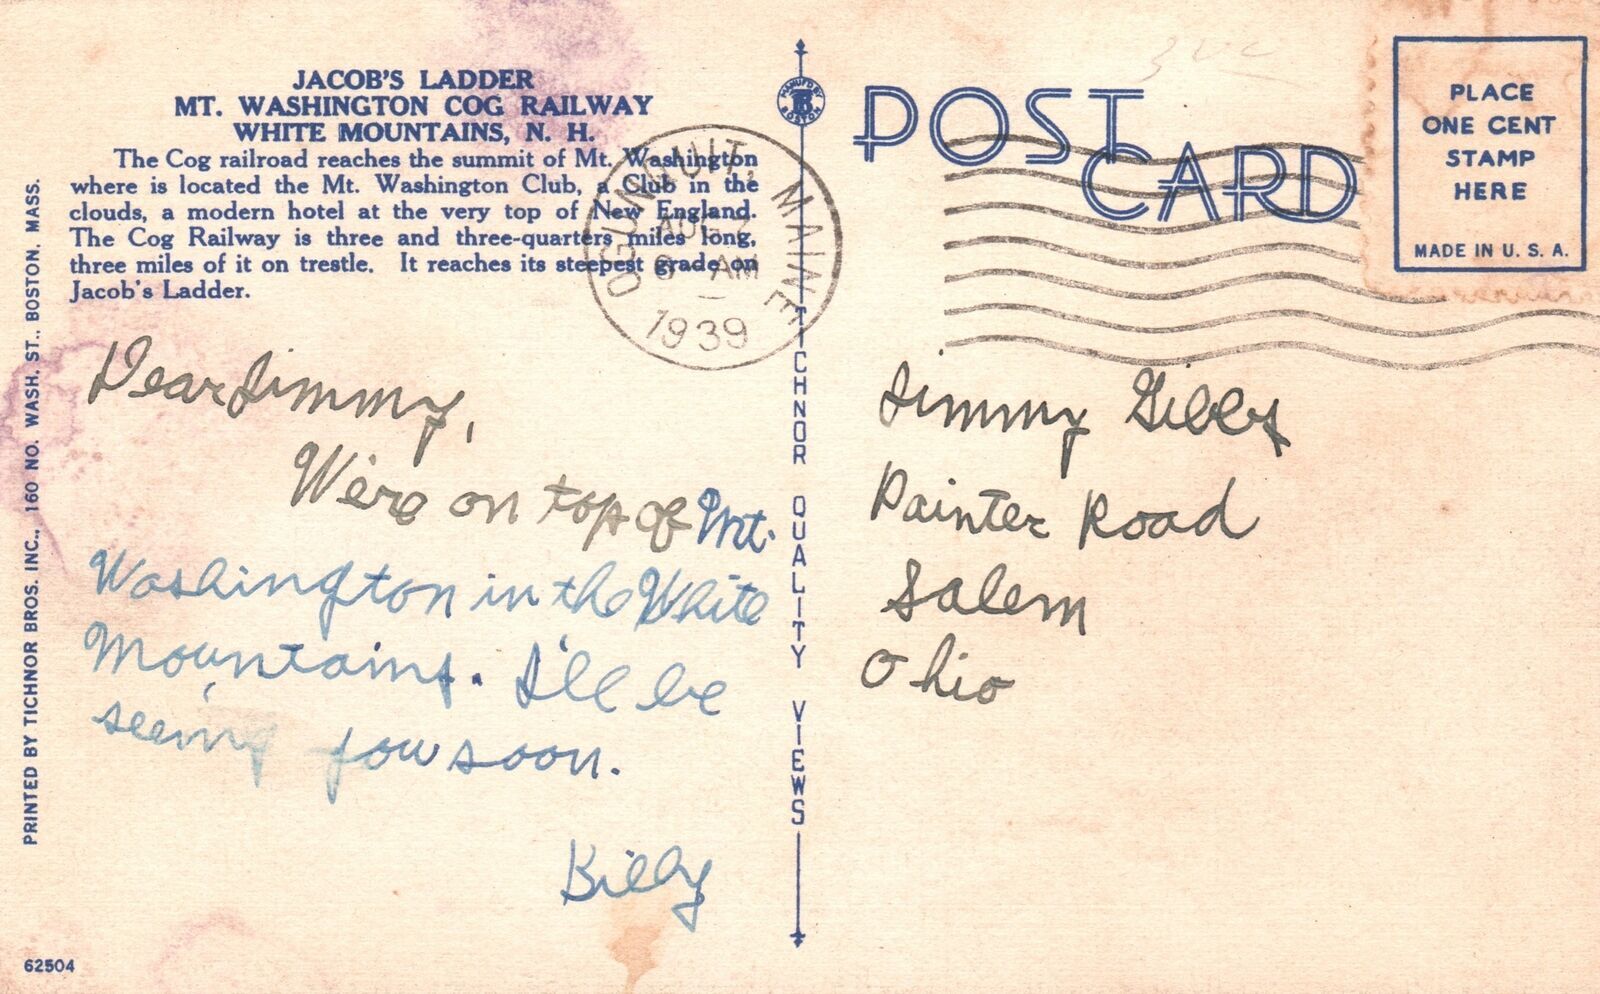 JACOB'S LADDER
MT. WASHINGTON COG RAILWAY
WHITE MOUNTAINS, N. H.
The Cog railroad reaches the summit of Mt. Washington
where is located the Mt. Washington Club, a Club in the
clouds, a modern hotel at the very top of New England.
The Cog Railway is three and three-quarters miles long,
three miles of it on trestle. It reaches its steepest grade on
Jacob's Ladder.
Dear Jimmy,
We're on top of Mt.
Washington in the White
Mountains. I'll be
seeing you soon.
Billy
PRINTED BY TICHNOR BROS. INC., 160 NO. WASH. ST., BOSTON, MASS.
62504
OGUNQUIT, MAINE
AUG
AM
1939
MANUF'D BY
TB
BOSTON
TICHNOR QUALITY VIEWS
POST
CARD
PLACE
ONE CENT
STAMP
HERE
MADE IN U. S. A.
Jimmy Gibbs
Painter Road
Salem
Ohio